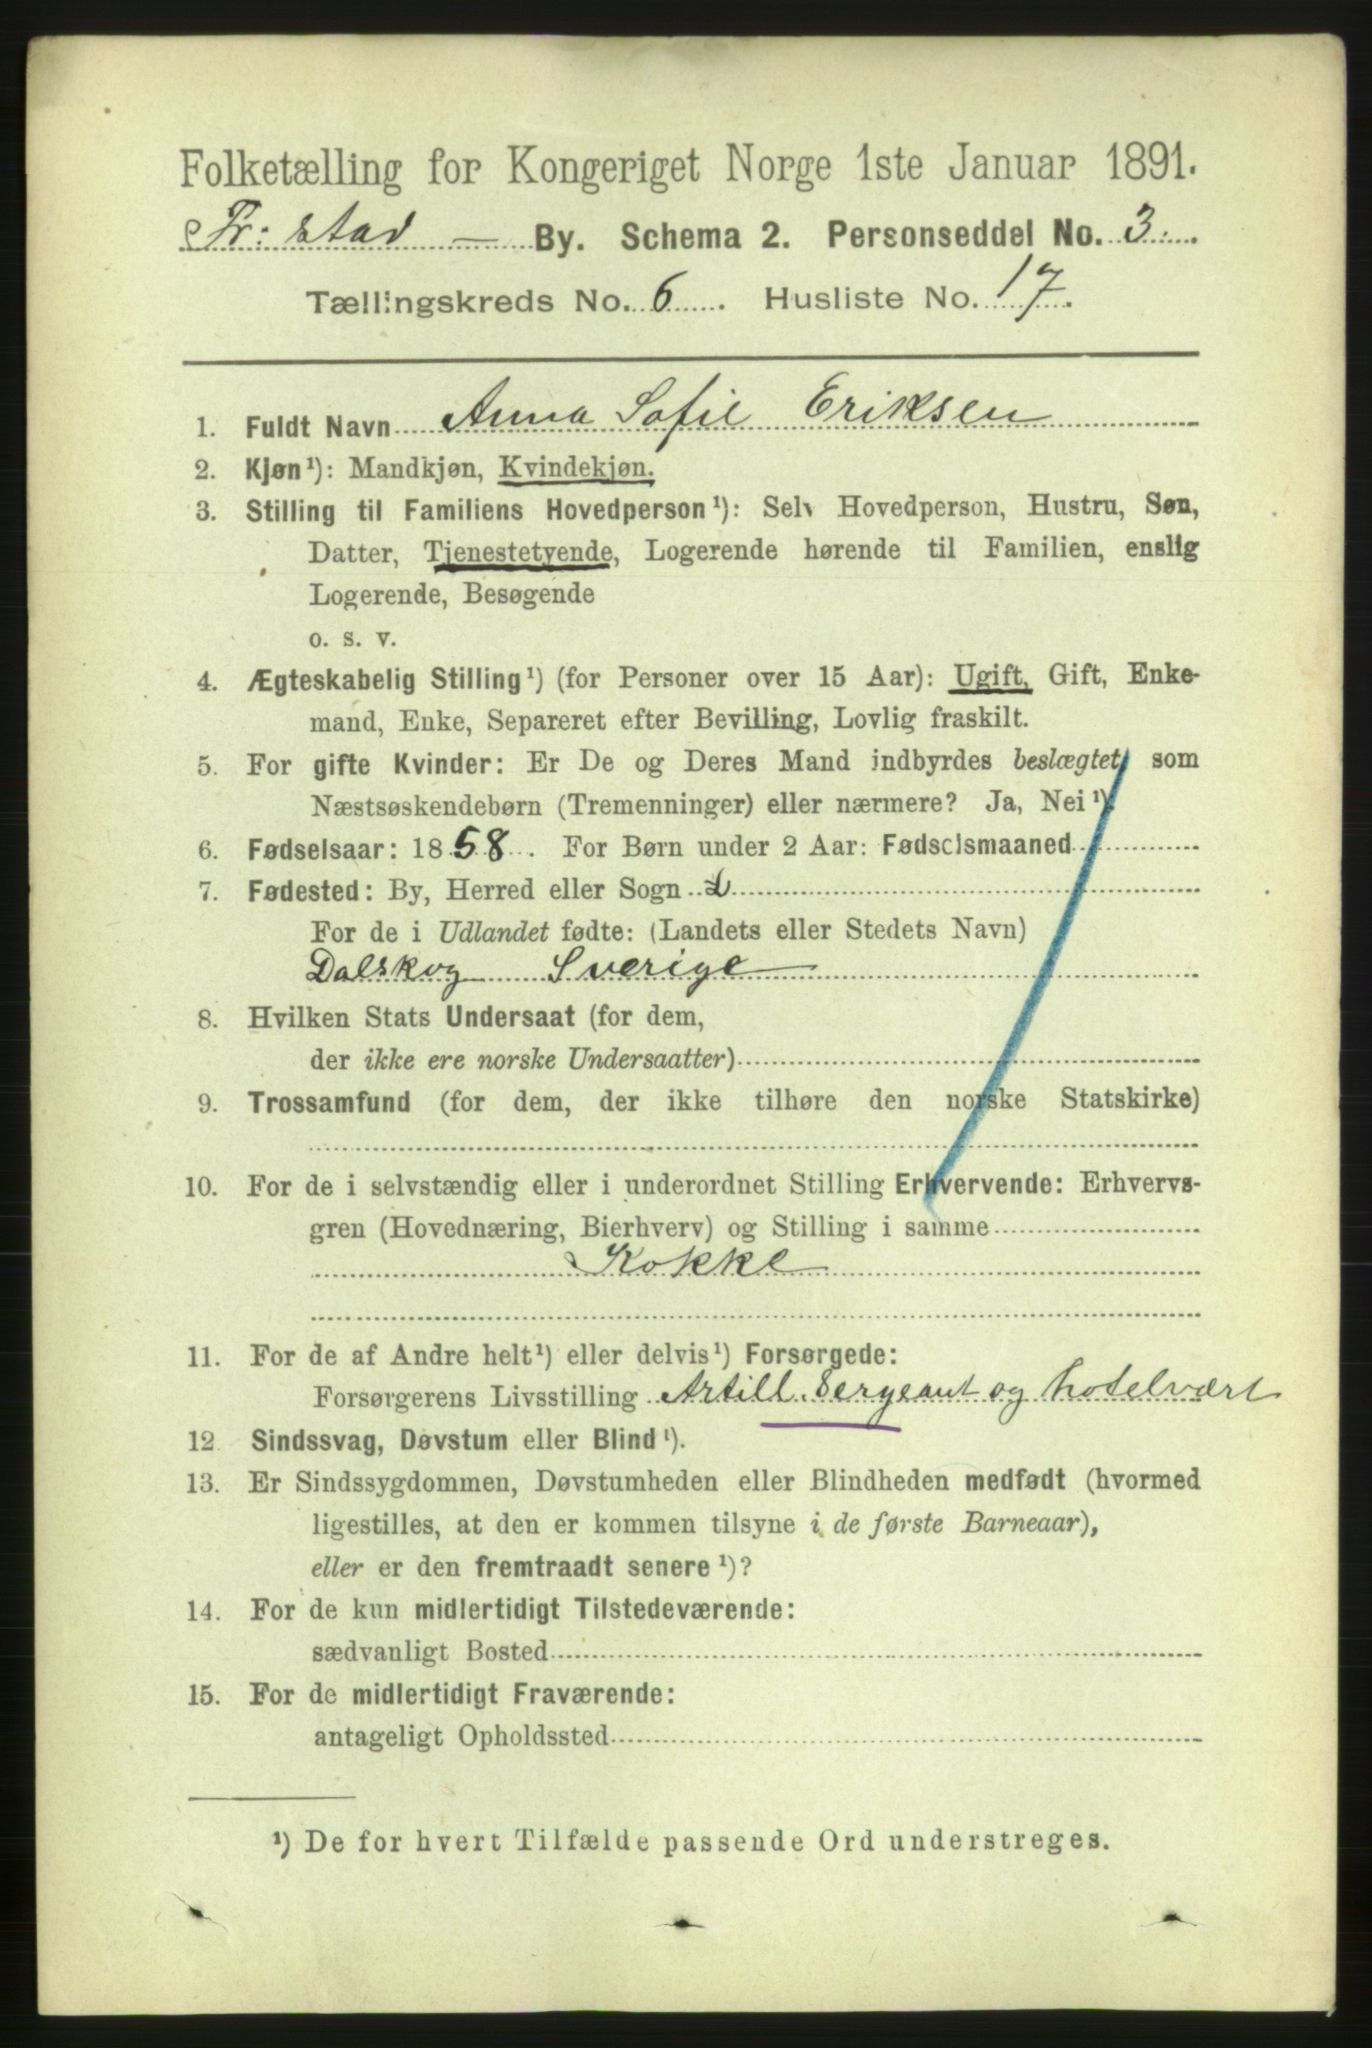 Folketælling for Kongeriget Norge 1ste Januar 1891.
Fr: stad — By. Schema 2. Personseddel No. 3.
Tællingskreds No. 6. Husliste No. 17.
1. Fuldt Navn Anna Sofie Eriksen
2. Kjøn¹): Mandkjøn, Kvindekjøn.
3. Stilling til Familiens Hovedperson¹): Selv Hovedperson, Hustru, Søn,
Datter, Tjenestetyende, Logerende hørende til Familien, enslig
Logerende, Besøgende
o. s. v.
4. Ægteskabelig Stilling¹) (for Personer over 15 Aar): Ugift, Gift, Enke-
mand, Enke, Separeret efter Bevilling, Lovlig fraskilt.
5. For gifte Kvinder: Er De og Deres Mand indbyrdes beslægtet, som
Næstsøskendebørn (Tremenninger) eller nærmere? Ja, Nei¹).
6. Fødselsaar: 1858. For Børn under 2 Aar: Fødselsmaaned
7. Fødested: By, Herred eller Sogn
For de i Udlandet fødte: (Landets eller Stedets Navn)
Dalskog Sverige
8. Hvilken Stats Undersaat (for dem,
der ikke ere norske Undersaatter)
9. Trossamfund (for dem, der ikke tilhøre den norske Statskirke)
10. For de i selvstændig eller i underordnet Stilling Erhvervende: Erhvervs-
gren (Hovednæring, Bierhverv) og Stilling i samme
Kokke
11. For de af Andre helt¹) eller delvis¹) Forsørgede:
Forsørgerens Livsstilling Artill. Sergeant og hotelvært
12. Sindssvag, Døvstum eller Blind¹).
13. Er Sindssygdommen, Døvstumheden eller Blindheden medfødt (hvormed
ligestilles, at den er kommen tilsyne i de første Barneaar),
eller er den fremtraadt senere¹)?
14. For de kun midlertidigt Tilstedeværende:
sædvanligt Bosted
15. For de midlertidigt Fraværende:
antageligt Opholdssted
¹) De for hvert Tilfælde passende Ord understreges.